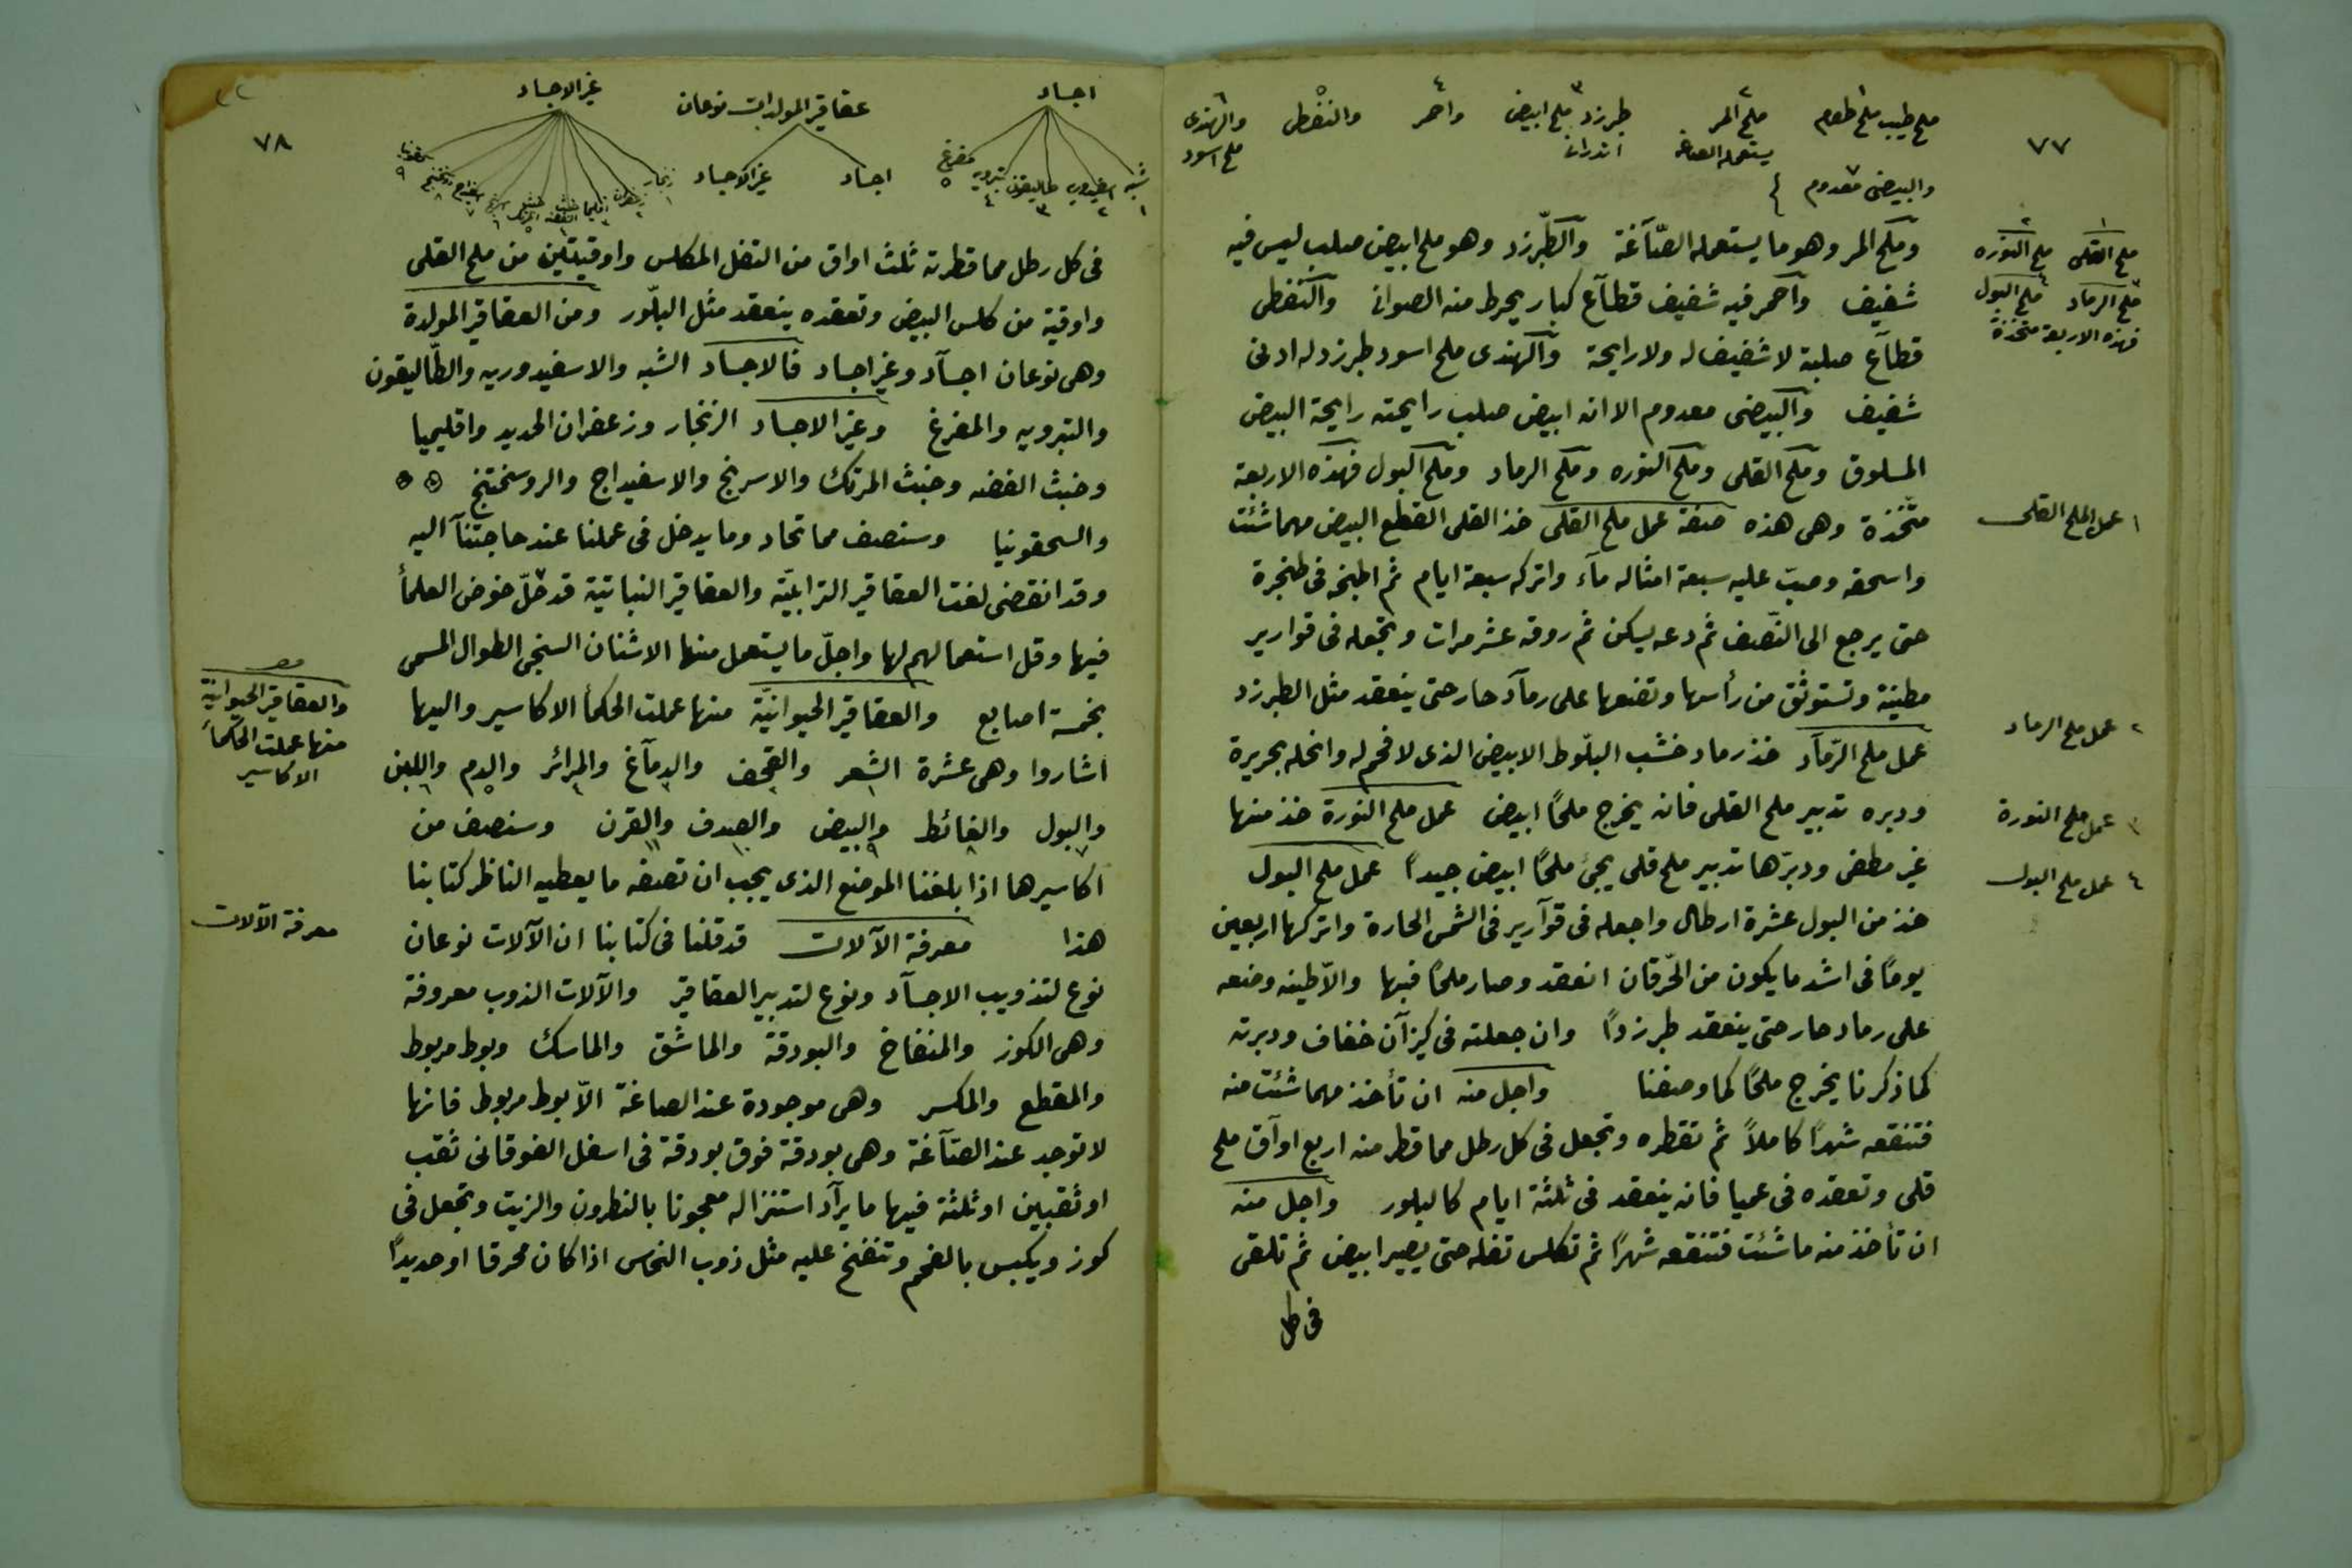 ٧٧
ملح طيب ملح طعام ملح المر طبرزد ملح ابيض واحمر والنفطى والهندى
يستعمله الصاغة اندرانى ملح اسود
والبيضى معدوم
وملح المر وهو ما يستعمله الصّآغة والطّبرزد وهو ملح ابيض صلب ليس فيه
شفيف واحمر فيه شفيف قطآع كبار يخرط منه الصوانى والنفطى
قطآع صلبة لا شفيف له ولا رايحة والهندى ملح اسود طبرزد له ادنى
شفيف والبيضى معدوم الا انه ابيض صلب رايحته رايحة البيض
المسلوق وملح القلى وملح النوره وملح الرماد وملح البول فهذه الاربعة
متّخذة وهى هذه صفة عمل ملح القلى خذ القلى القطع البيض مهما شئت
واسحقه وصبّ عليه سبعة امثاله مآء واتركه سبعة ايام ثم اطبخه فى طنجرة
حتى يرجع الى النّصف ثم دعه يسكن ثم روقه عشر مرات وتجعله فى قوارير
مطينة وتستوثق من رأسها وتضعها على رمآد حار حتى ينعقد مثل الطبرزد
عمل ملح الرّمآد خذ رماد خشب البلّوط الابيض الذى لا فحم له وانخله بحريرة
ودبره تدبير ملح القلى فانه يخرج ملحًا ابيض عمل ملح النورة خذ منها
غير مطفى ودبّرها تدبير ملح قلى يجئ ملحًا ابيض جيدًا عمل ملح البول
خذ من البول عشرة ارطال واجعله فى قوآرير فى الشمس الحارة واتركها اربعين
يومًا فى اشد ما يكون من الحّرقان انعقد وصار ملحًا فبها والّا طينه وضعه
على رماد حار حتى ينعقد طبرزدًا وان جعلته فى كيزآن خفاف ودبرته
كما ذكرنا يخرج ملحًا كما وصفنا واجل منه ان تأخذ مهما شئت منه
فتنقعه شهرًا كاملاً ثم تقطره وتجعل فى كل رطل مما قطر منه اربع اوآق ملح
قلى وتعقده فى عميا فانه ينعقد فى ثلثة ايام كالبلور واجل منه
ان تأخذ منه ما شئت فتنقعه شهرًا ثم تكلس تفله حتى يصير ابيض ثم تلقى
فى كل
ملح القلى ملح النوره
ملح الرماد ملح البول
فهذه الاربعة متخذة
١ عمل الملح القلى
٢ عمل ملح الرماد
٣ عمل ملح النورة
٤ عمل ملح البول
٧٨
اجساد عقاقير المولدات نوعان غير الاجساد
شبه اسفيدوريه طاليقون تبرويه مفرغ
اجساد غير الاجساد
فى كل رطل مما قطرته ثلث اواق من التفل المكلس واوقيتين من ملح القلى
واوقية من كلس البيض وتعقده ينعقد مثل البلّور ومن العقاقير المولدة
وهى نوعان اجسآد وغير اجساد فالاجساد الشبه والاسفيدوريه والطّاليقون
والتبرويه والمفرغ وغير الاجساد الزنجار وزعفران الحديد واقليميا
وخبث الفضه وخبث المرتك والاسرنج والاسفيداج والروسختج
والسحقونيا وسنصف مما تحاد وما يدخل فى عملنا عند حاجتنآ اليه
وقد انقضى لغت العقاقير الترابيّة والعقاقير النباتية قد خلّ خوض العلمأ
فيها وقل استعمالهم لها واجلّ ما يستعمل منها الاشنان السنجى الطوال المسمى
بخمسة اصابع والعقاقير الحيوانيّة منها عملت الحكمأ الاكاسير واليها
اشاروا وهى عشرة الشعر والقحف والدمآغ والمرائر والدم واللبن
والبول والغائط والبيض والصدف والقرن وسنصف من
اكاسيرها اذا بلغنا الموضع الذى يجب ان تصفه ما يعطيه الناظر كتابنا
هذا معرفة الآلات قد قلنا فى كتابنا ان الآلات نوعان
نوع لتذويب الاجسآد ونوع لتدبير العقاقير والآلات الذوب معروفة
وهى الكوز والمنفاخ والبودقة والماشق والماسك وبوط مربوط
والمقطع والمكسر وهى موجودة عند الصاغة الّا بوط مربوط فانها
لا توجد عند الصّآغة وهى بودقة فوق بودقة فى اسفل الفوقانى ثقب
او ثقبين او ثلثة فيها ما يرآد استنزاله معجونا بالنطرون والزيت وتجعل فى
كوز ويكبس بالفحم وتنفخ عليه مثل ذوب النحاس اذا كان محرقا او حديدًا
والعقاقير الحيوانية
منها عملت الحكمأ
الاكاسير
معرفة الآلات